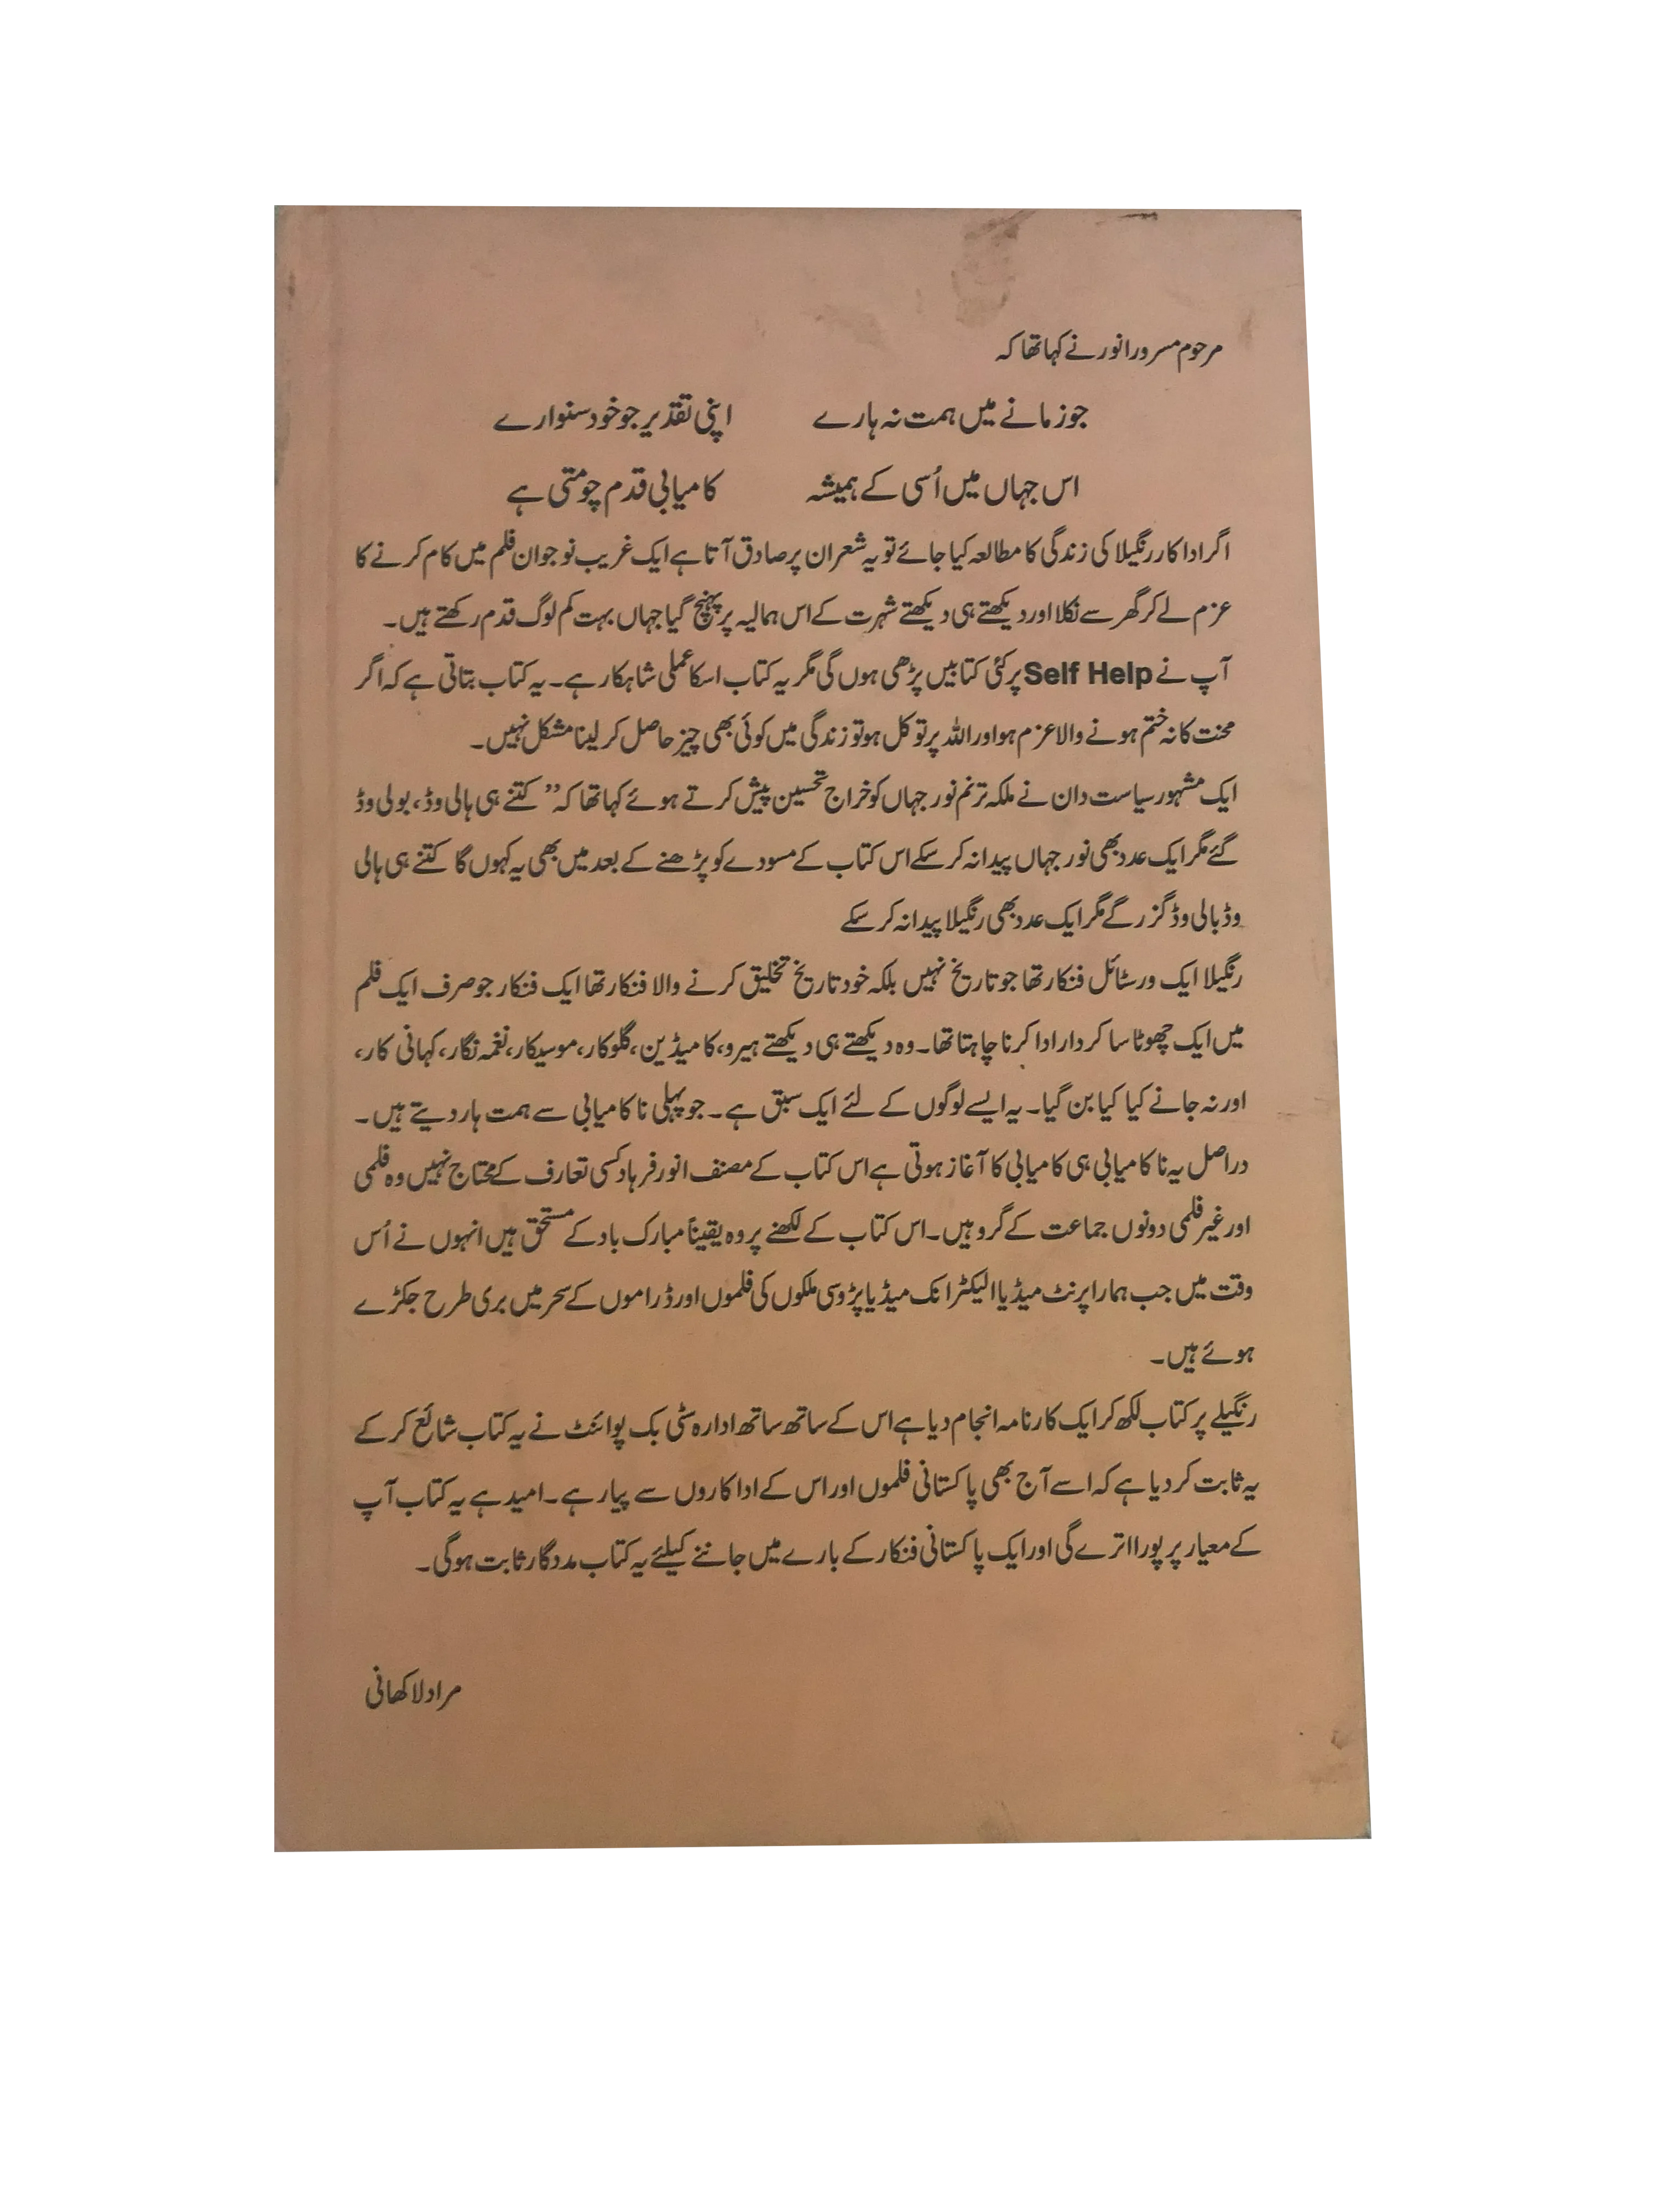 مرحوم مسرور انور نے کہا تھا کہ
جو زمانے میں ہمت نہ ہارے اپنی تقدیر جو خود سنوارے
اس جہاں میں اُسی کے ہمیشہ کامیابی قدم چومتی ہے
اگر اداکار رنگیلا کی زندگی کا مطالعہ کیا جائے تو یہ شعر ان پر صادق آتا ہے ایک غریب نوجوان فلم میں کام کرنے کا
عزم لے کر گھر سے نکلا اور دیکھتے ہی دیکھتے شہرت کے اس ہمالیہ پر پہنچ گیا جہاں بہت کم لوگ قدم رکھتے ہیں۔
آپ نے Self Help پر کئی کتابیں پڑھی ہوں گی مگر یہ کتاب اسکا عملی شاہکار ہے۔ یہ کتاب بتاتی ہے کہ اگر
محنت کا نہ ختم ہونے والا عزم ہو اور اللہ پر توکل ہو تو زندگی میں کوئی بھی چیز حاصل کر لینا مشکل نہیں۔
ایک مشہور سیاست دان نے ملکہ ترنم نور جہاں کو خراج تحسین پیش کرتے ہوئے کہا تھا کہ ’’ کتنے ہی ہالی وڈ، بولی وڈ
گئے مگر ایک عدد بھی نور جہاں پیدا نہ کر سکے اس کتاب کے مسودے کو پڑھنے کے بعد میں بھی یہ کہوں گا کتنے ہی ہالی
وڈ بالی وڈ گزر گے مگر ایک عدد بھی رنگیلا پیدا نہ کر سکے
رنگیلا ایک ورسٹائل فنکار تھا جو تاریخ نہیں بلکہ خود تاریخ تخلیق کرنے والا فنکار تھا ایک فنکار جو صرف ایک فلم
میں ایک چھوٹا سا کردار ادا کرنا چاہتا تھا۔ وہ دیکھتے ہی دیکھتے ہیرو، کامیڈین، گلوکار، موسیکار، نغمہ نگار، کہانی کار،
اور نہ جانے کیا کیا بن گیا۔ یہ ایسے لوگوں کے لئے ایک سبق ہے۔ جو پہلی ناکامیابی سے ہمت ہار دیتے ہیں۔
دراصل یہ ناکامیابی ہی کامیابی کا آغاز ہوتی ہے اس کتاب کے مصنف انور فرہاد کسی تعارف کے محتاج نہیں وہ فلمی
اور غیر فلمی دونوں جماعت کے گرو ہیں۔ اس کتاب کے لکھنے پر وہ یقیناً مبارک باد کے مستحق ہیں انہوں نے اُس
وقت میں جب ہمارا پرنٹ میڈیا الیکٹرانک میڈیا پڑوسی ملکوں کی فلموں اور ڈراموں کے سحر میں بری طرح جکڑے
ہوئے ہیں۔
رنگیلے پر کتاب لکھ کر ایک کارنامہ انجام دیا ہے اس کے ساتھ ساتھ ادارہ سٹی بک پوائنٹ نے یہ کتاب شائع کر کے
یہ ثابت کر دیا ہے کہ اسے آج بھی پاکستانی فلموں اور اس کے اداکاروں سے پیار ہے۔ امید ہے یہ کتاب آپ
کے معیار پر پورا اترے گی اور ایک پاکستانی فنکار کے بارے میں جاننے کیلئے یہ کتاب مددگار ثابت ہوگی۔
مراد لاکھانی